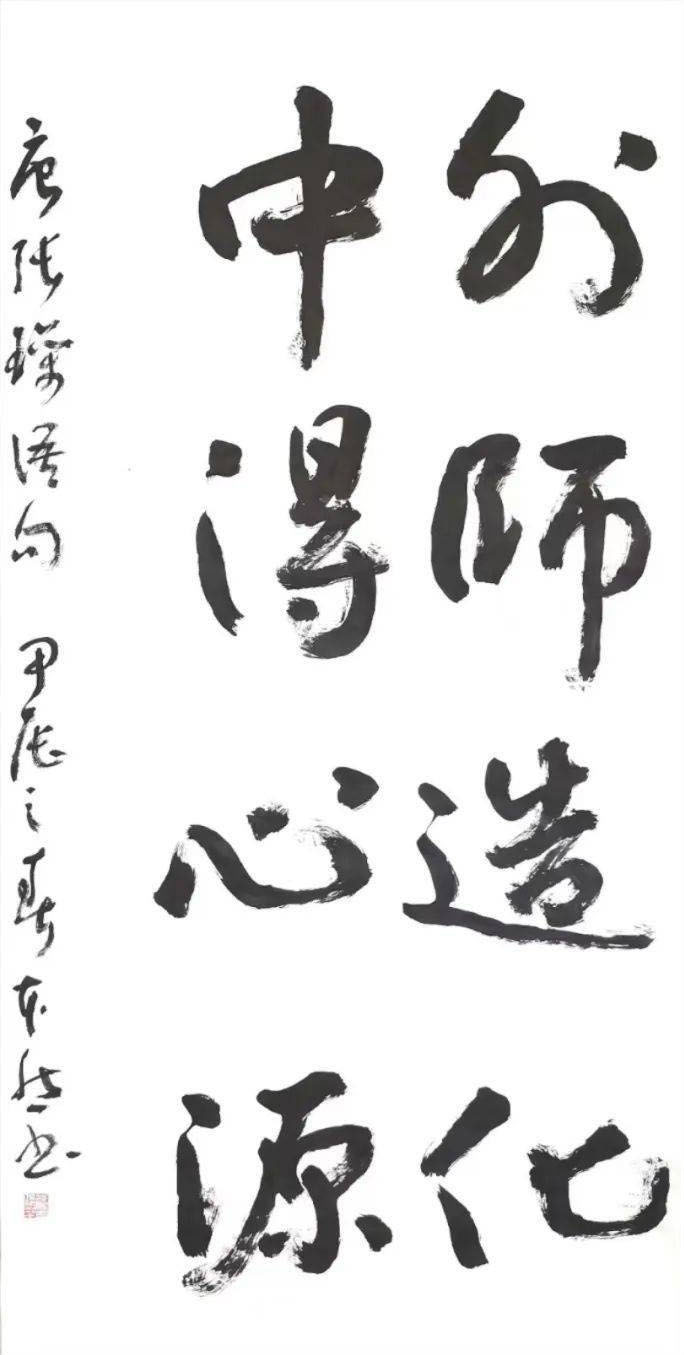 外師造化
中得心源
唐張璪語句 甲辰之春 本然书